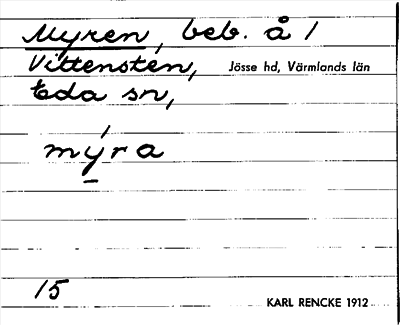 Myren, beb. å 1
Vittensten, Jösse hd, Värmlands län
Eda sn,
mýra
15
KARL RENCKE 1912